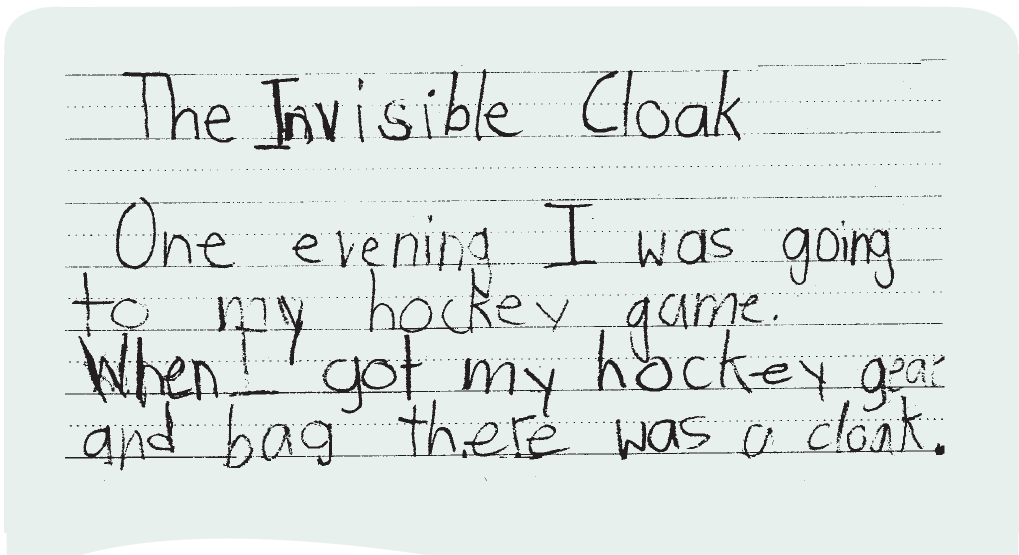 The Invisible Cloak
One evening I was going
to my hockey game.
When I got my hockey gear
and bag there was a cloak.